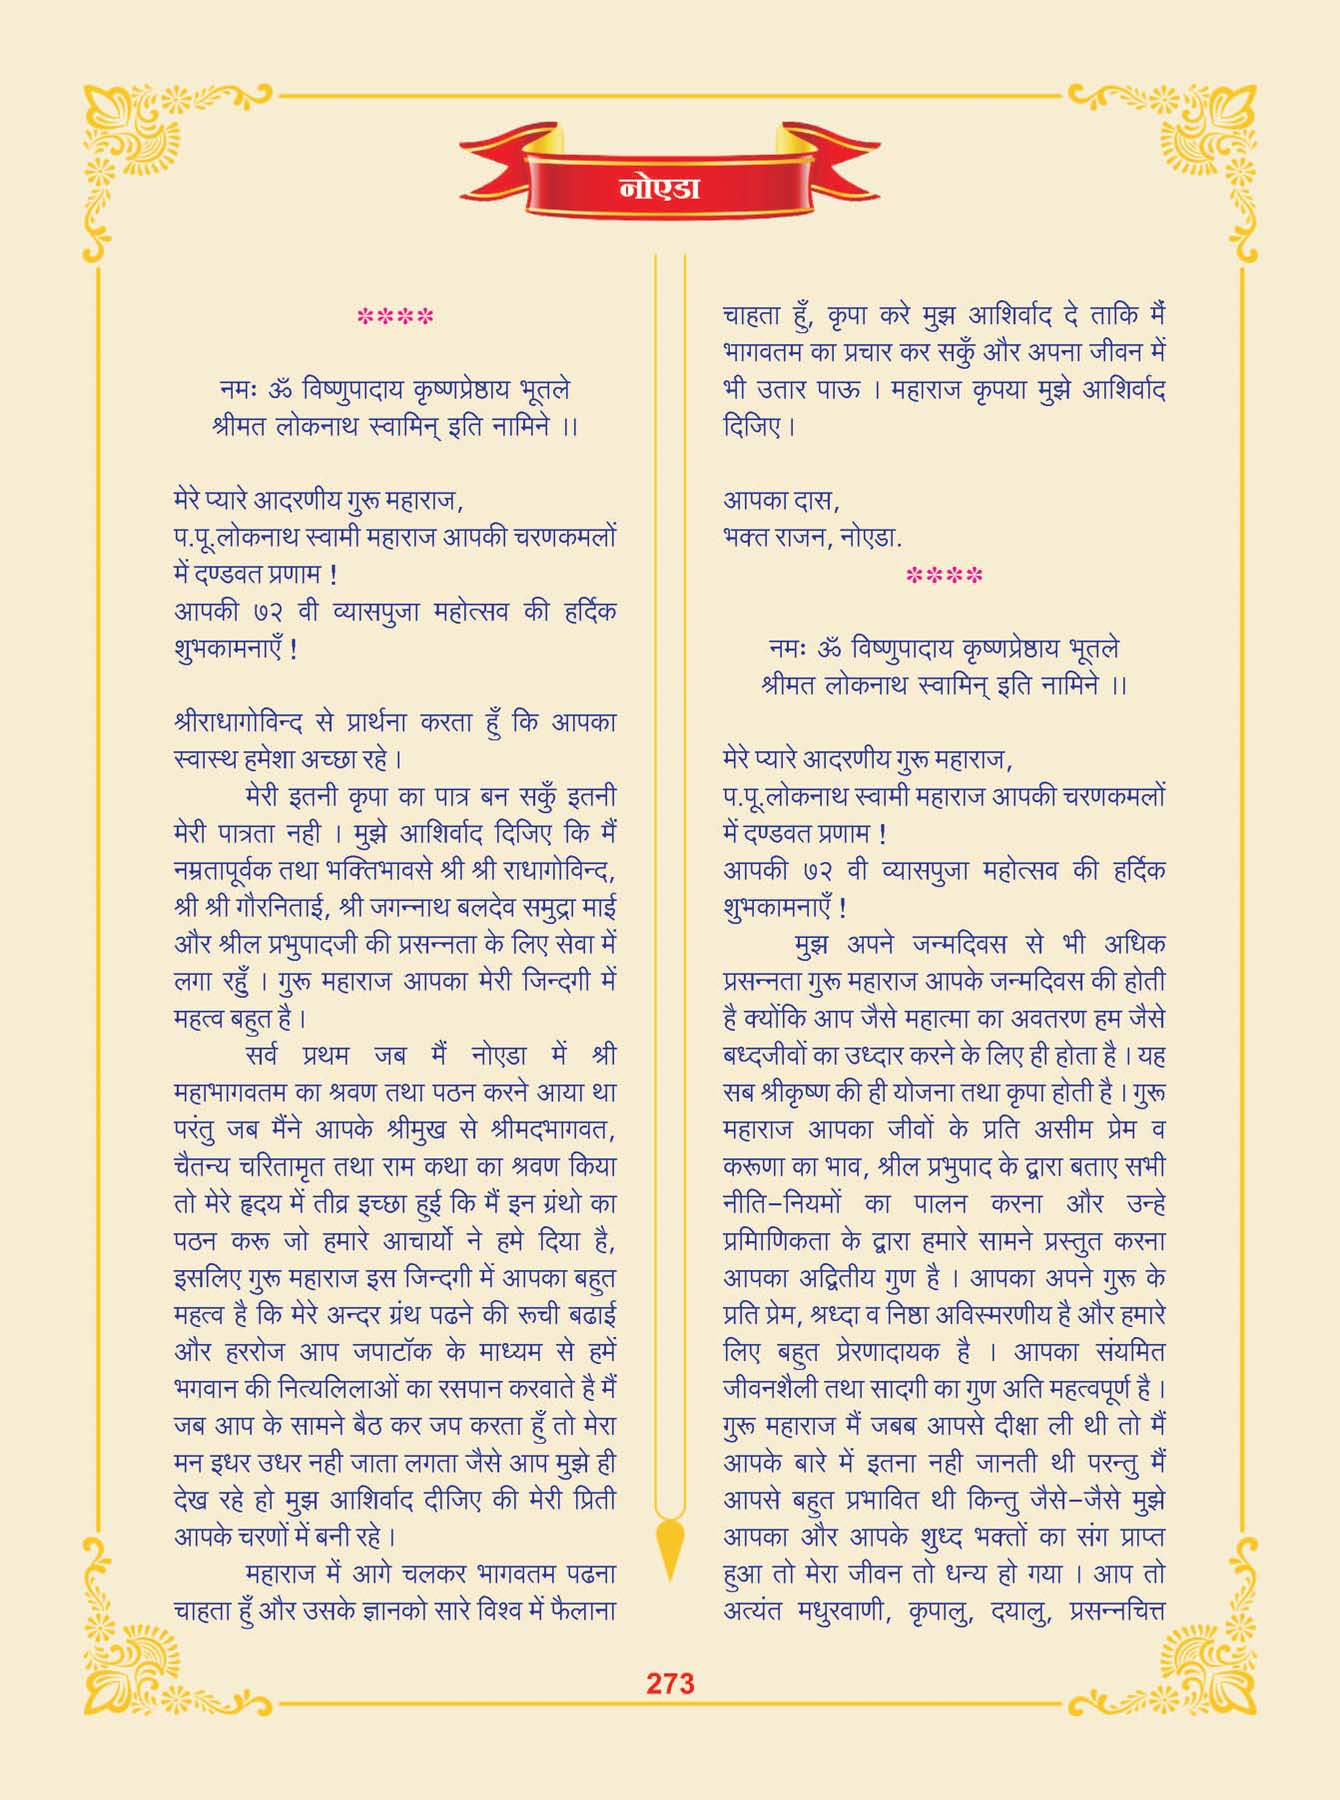 नोएडा
****
नमः ॐ विष्णुपादाय कृष्णप्रेष्ठाय भूतले
श्रीमत लोकनाथ स्वामिन् इति नामिने ।।
मेरे प्यारे आदरणीय गुरू महाराज,
प.पू.लोकनाथ स्वामी महाराज आपकी चरणकमलों
में दण्डवत प्रणाम !
आपकी ७२ वी व्यासपुजा महोत्सव की हर्दिक
शुभकामनाएँ !
श्रीराधागोविन्द से प्रार्थना करता हुँ कि आपका
स्वास्थ हमेशा अच्छा रहे ।
मेरी इतनी कृपा का पात्र बन सकुँ इतनी
मेरी पात्रता नही । मुझे आशिर्वाद दिजिए कि मैं
नम्रतापूर्वक तथा भक्तिभावसे श्री श्री राधागोविन्द,
श्री श्री गौरनिताई, श्री जगन्नाथ बलदेव समुद्रा माई
और श्रील प्रभुपादजी की प्रसन्नता के लिए सेवा में
लगा रहुँ । गुरू महाराज आपका मेरी जिन्दगी में
महत्व बहुत है ।
सर्व प्रथम जब मैं नोएडा में श्री
महाभागवतम का श्रवण तथा पठन करने आया था
परंतु जब मैंने आपके श्रीमुख से श्रीमदभागवत,
चैतन्य चरितामृत तथा राम कथा का श्रवण किया
तो मेरे हृदय में तीव्र इच्छा हुई कि मैं इन ग्रंथो का
पठन करू जो हमारे आचार्यो ने हमे दिया है,
इसलिए गुरू महाराज इस जिन्दगी में आपका बहुत
महत्व है कि मेरे अन्दर ग्रंथ पढने की रूची बढाई
और हररोज आप जपाटॉक के माध्यम से हमें
भगवान की नित्यलिलाओं का रसपान करवाते है मैं
जब आप के सामने बैठ कर जप करता हुँ तो मेरा
मन इधर उधर नही जाता लगता जैसे आप मुझे ही
देख रहे हो मुझ आशिर्वाद दीजिए की मेरी प्रिती
आपके चरणों में बनी रहे ।
महाराज में आगे चलकर भागवतम पढना
चाहता हुँ और उसके ज्ञानको सारे विश्व में फैलाना
चाहता हुँ, कृपा करे मुझ आशिर्वाद दे ताकि मैं
भागवतम का प्रचार कर सकुँ और अपना जीवन में
भी उतार पाऊ । महाराज कृपया मुझे आशिर्वाद
दिजिए ।
आपका दास,
भक्त राजन, नोएडा.
****
नमः ॐ विष्णुपादाय कृष्णप्रेष्ठाय भूतले
श्रीमत लोकनाथ स्वामिन् इति नामिने ।।
मेरे प्यारे आदरणीय गुरू महाराज,
प.पू.लोकनाथ स्वामी महाराज आपकी चरणकमलों
में दण्डवत प्रणाम !
आपकी ७२ वी व्यासपुजा महोत्सव की हर्दिक
शुभकामनाएँ !
मुझ अपने जन्मदिवस से भी अधिक
प्रसन्नता गुरू महाराज आपके जन्मदिवस की होती
है क्योंकि आप जैसे महात्मा का अवतरण हम जैसे
बध्दजीवों का उध्दार करने के लिए ही होता है । यह
सब श्रीकृष्ण की ही योजना तथा कृपा होती है । गुरू
महाराज आपका जीवों के प्रति असीम प्रेम व
करूणा का भाव, श्रील प्रभुपाद के द्वारा बताए सभी
नीति-नियमों का पालन करना और उन्हे
प्रमिाणिकता के द्वारा हमारे सामने प्रस्तुत करना
आपका अद्वितीय गुण है । आपका अपने गुरू के
प्रति प्रेम, श्रध्दा व निष्ठा अविस्मरणीय है और हमारे
लिए बहुत प्रेरणादायक है । आपका संयमित
जीवनशैली तथा सादगी का गुण अति महत्वपूर्ण है ।
गुरू महाराज मैं जबब आपसे दीक्षा ली थी तो मैं
आपके बारे में इतना नही जानती थी परन्तु मैं
आपसे बहुत प्रभावित थी किन्तु जैसे-जैसे मुझे
आपका और आपके शुध्द भक्तों का संग प्राप्त
हुआ तो मेरा जीवन तो धन्य हो गया । आप तो
अत्यंत मधुरवाणी, कृपालु, दयालु, प्रसन्नचित्त
273